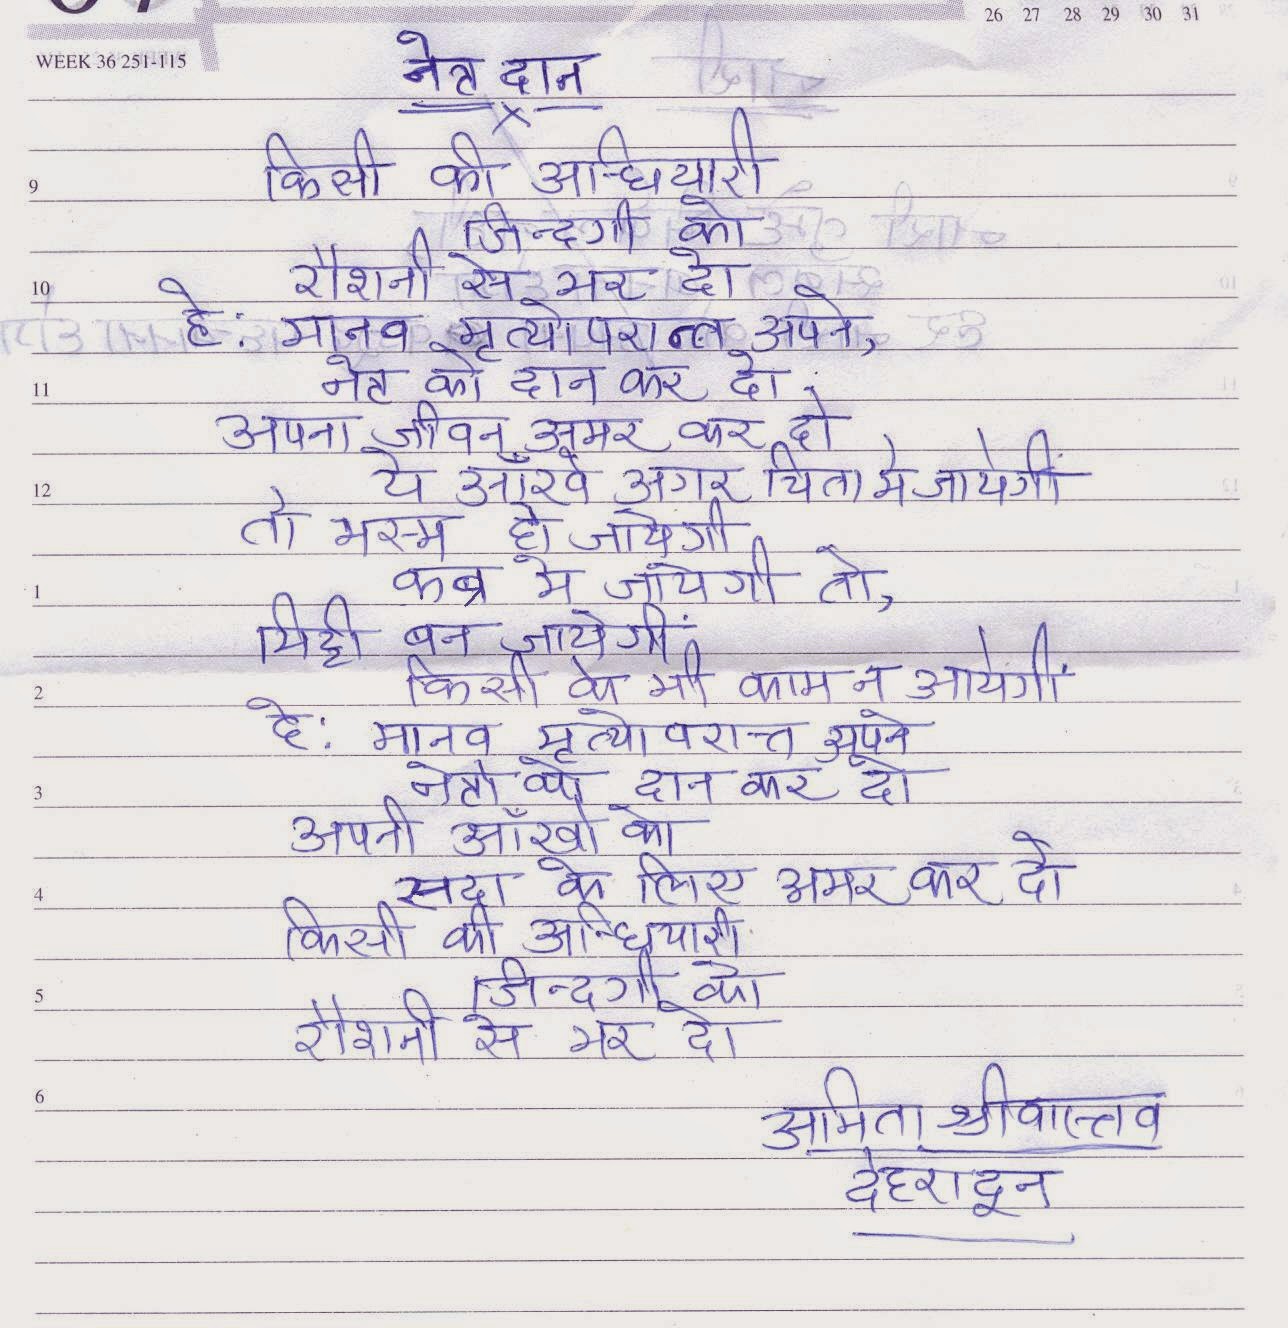 26 27 28 29 30 31
WEEK 36 251-115
नेत्र दान
किसी की अन्धियारी
9
जिन्दगी को
रौशनी से भर दो
10
हे: मानव मृत्योपरान्त अपने,
नेत्र को दान कर दो
11
अपना जीवन अमर कर दो
ये आँखें अगर चिता मे जायेगीं
12
तो भस्म हो जायेगी
कब्र मे जायेगी तो,
1
मिट्टी बन जायेगीं
किसी के भी काम न आयेगीं
2
हे: मानव मृत्योपरान्त अपने
नेत्रो को दान कर दो
3
अपनी आँखो को
सदा के लिए अमर कर दो
4
किसी की अन्धियारी
जिन्दगी को
5
रौशनी से भर दो
6
अमिता श्रीवास्तव
देहरादून